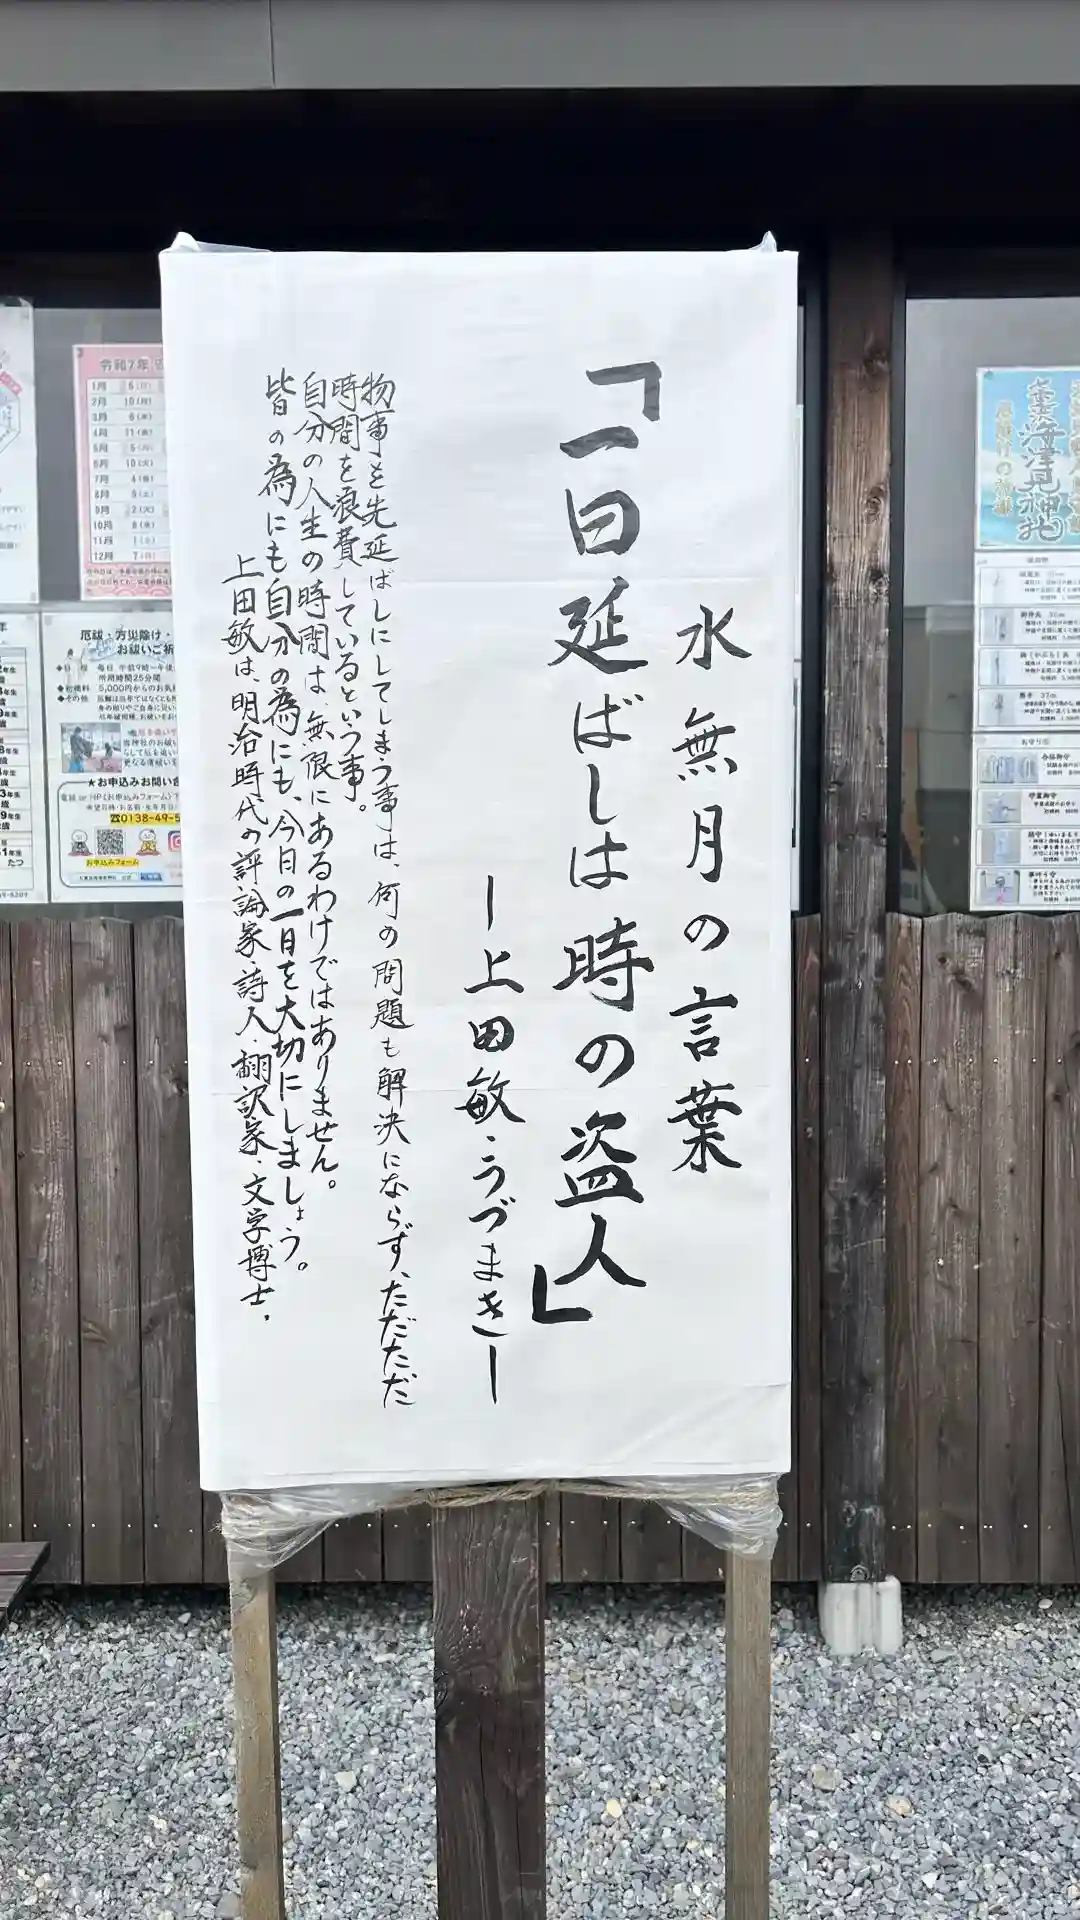 水無月の言葉
「一日延ばしは時の盗人」
ー上田敏・うづまきー
物事を先延ばしにしてしまう事は、何の問題も解決にならず、ただただ
時間を浪費しているという事。
自分の人生の時間は、無限にあるわけではありません。
皆の為にも自分の為にも、今日の一日を大切にしましょう。
上田敏は、明治時代の評論家・詩人・翻訳家・文学博士。
令和7年
1月
2月
3月
4月
5月
6月
7月
8月
9月
10月
11月
12月
厄祓・方災除け・
お祓いご祈
◆日 程 毎日 午前9時〜午後
所用時間25分間
◆初穂料 5,000円からのお気
◆その他
★お申込みお問い合
☎0138-49-5
お申込みフォーム
合格御守
学業御守